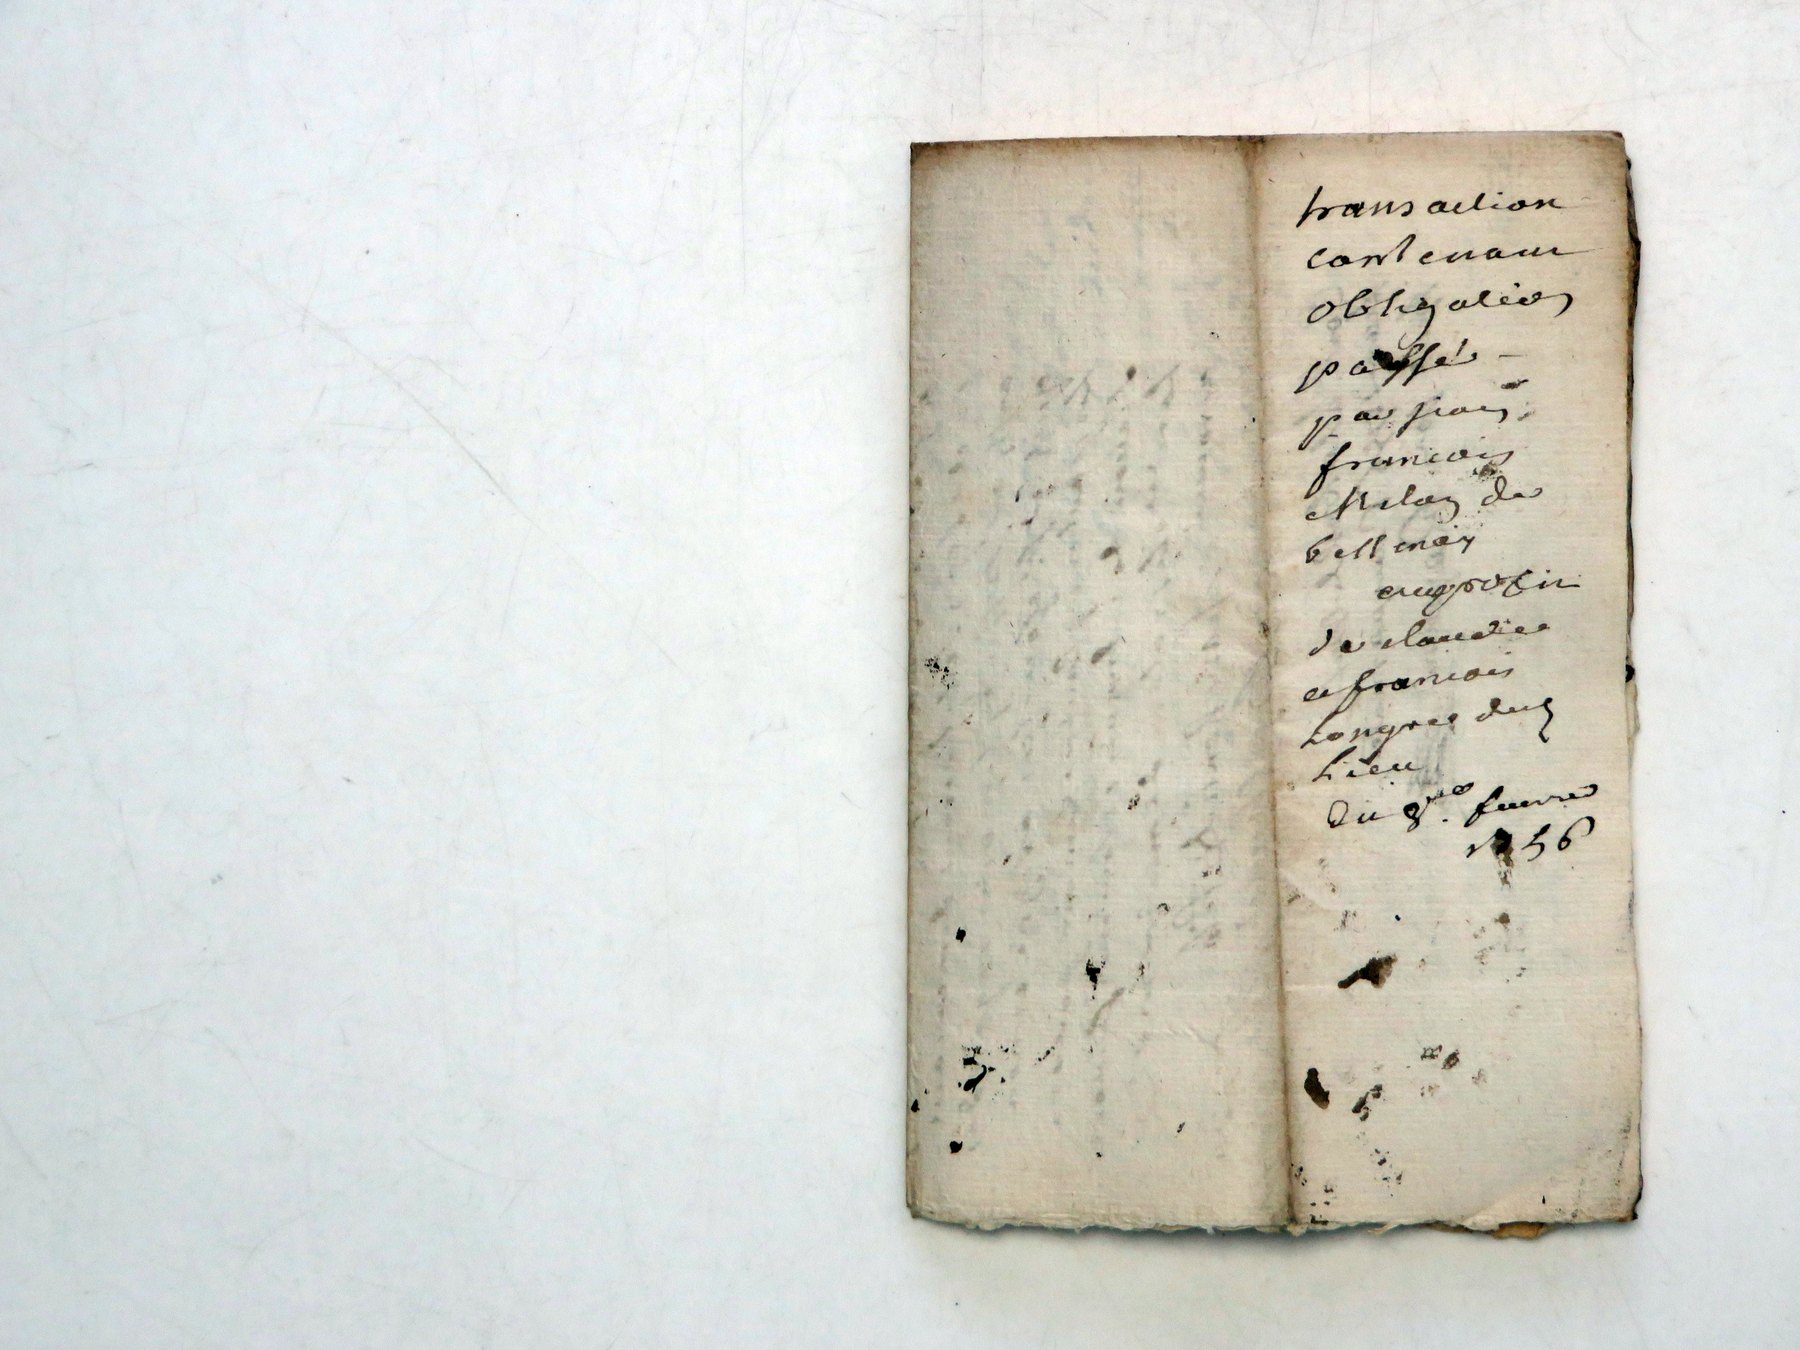 transaction
contenant
obligation
passé
par jean
francois
Milan de
bellmay
auproffit
de claude
et francois
Longree dud
Lieu
Du 8me. feuvrie
1756